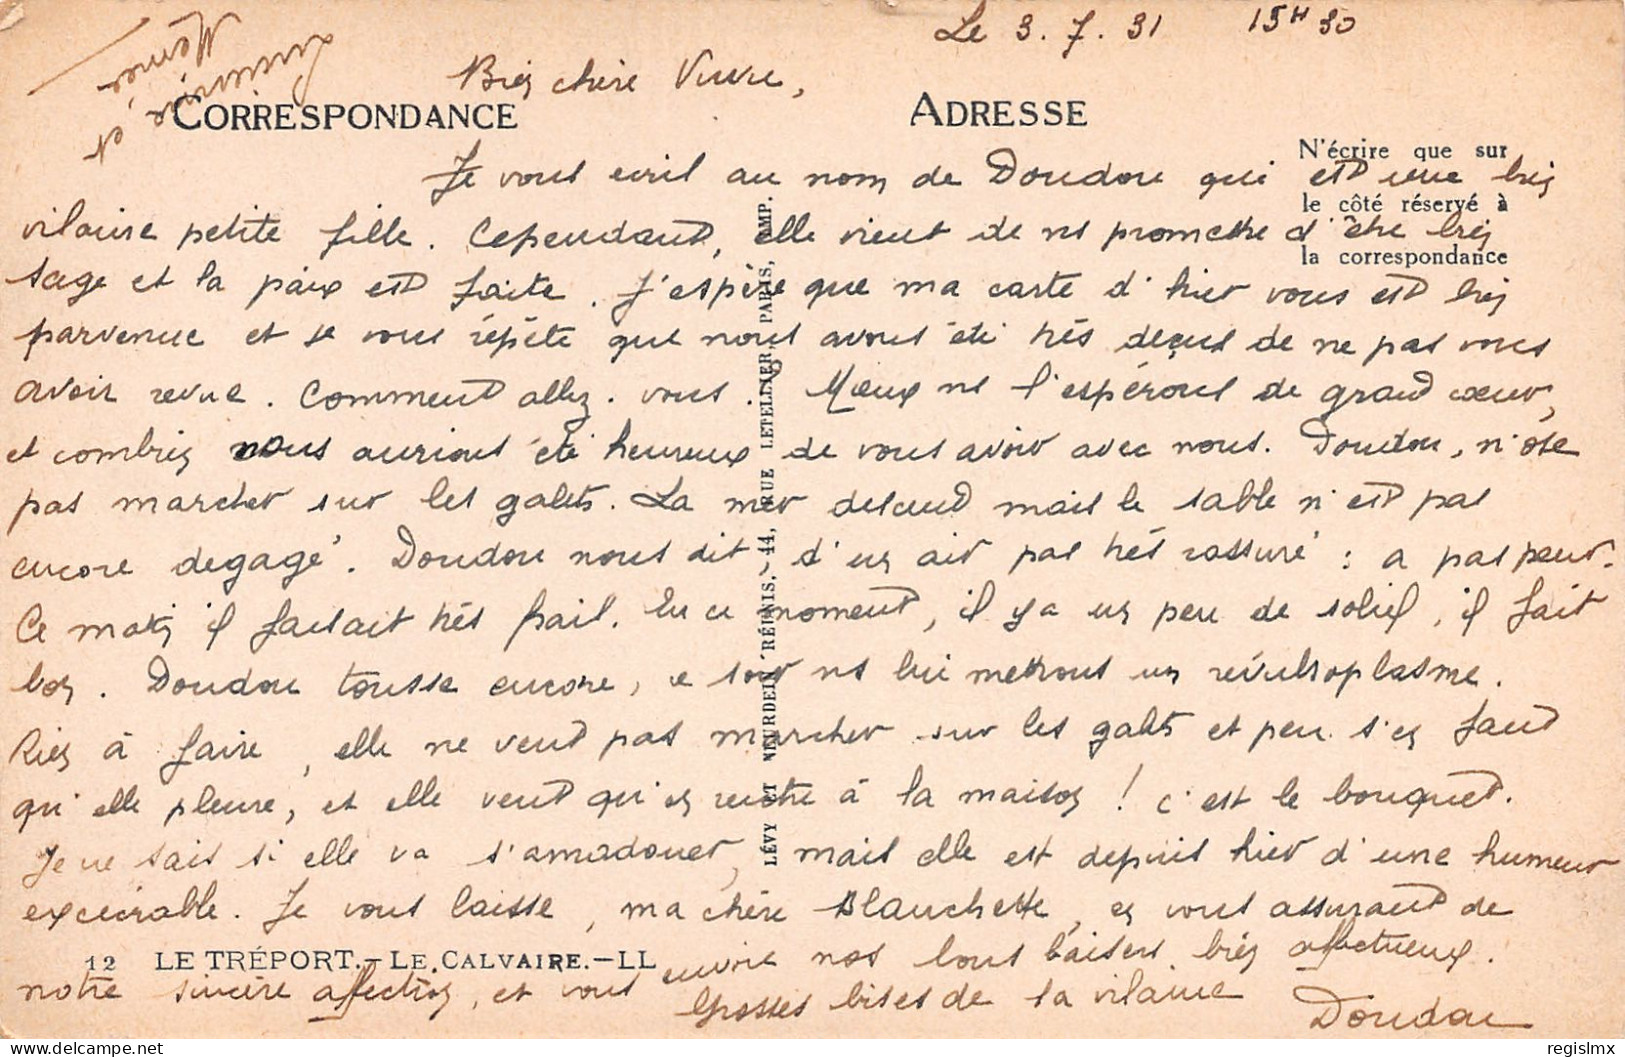 Le 3.7.31 15H30
Bien chère Vivie,
CORRESPONDANCE
ADRESSE
N'écrire que sur
le côté réservé à
la correspondance
Je vous écris au nom de Doudou qui est une très
vilaine petite fille. Cependant, elle vient de ns promettre d'être très
sage et la paix est faite. J'espère que ma carte d'hier vous est bien
parvenue et je vous répète que nous avons été très déçus de ne pas vous
avoir revue. Comment allez-vous ? Mieux ns l'espérons de grand cœur,
et combien nous aurions été heureux de vous avoir avec nous. Doudou, n'ose
pas marcher sur les galets. La mer descend mais le sable n'est pas
encore dégagé. Doudou nous dit, d'un air pas très rassuré : a pas peur.
Ce matin il faisait très frais. En ce moment, il y a un peu de soleil, il fait
bon. Doudou tousse encore, ce soir ns lui mettrons un révulsoplasme.
Rien à faire, elle ne veut pas marcher sur les galets et peu s'en faut
qu'elle pleure, et elle veut qu'on rentre à la maison ! c'est le bouquet.
Je ne sais si elle va s'amadouer, mais elle est depuis hier d'une humeur
excécrable. Je vous laisse, ma chère Blanchette, en vous assurant de
notre sincère affection, et vous envoie nos bons baisers bien affectueux.
Grosses bises de la vilaine Doudou
12 LE TRÉPORT.-LE CALVAIRE.-LL
LÉVY ET NEURDEIN RÉUNIS, 44, RUE LETELLIER, PARIS, IMP.
regislmx